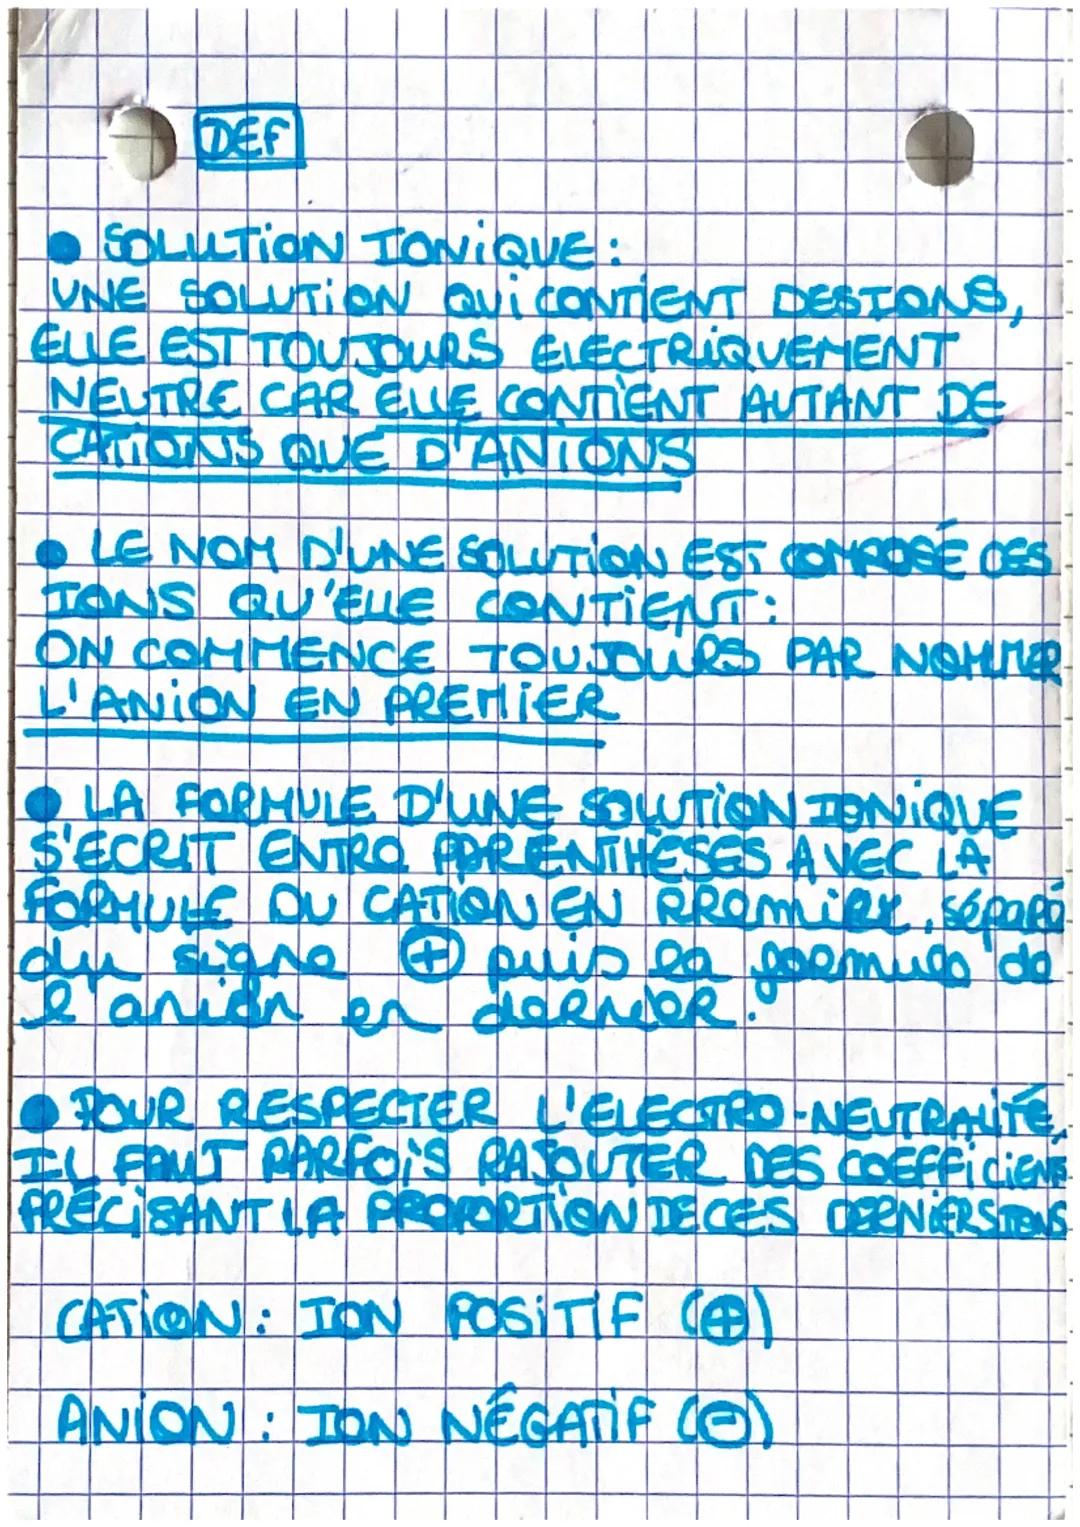 DEF
• SOLUTION IONIQUE :
UNE SOLUTION QUI CONTIENT DES IONS,
ELLE EST TOUJOURS ELECTRIQUEMENT
NEUTRE CAR ELLE CONTIENT AUTANT DE
CATIONS QUE D'ANIONS
• LE NOM D'UNE SOLUTION EST COMPOSÉ DES
IONS QU'ELLE CONTIENT :
ON COMMENCE TOUJOURS PAR NOMMER
L'ANION EN PREMIER
• LA FORMULE D'UNE SOLUTION IONIQUE
S'ECRIT ENTRE PARENTHESES AVEC LA
FORMULE DU CATION EN PREMIER, séparé
du signe ⊕ puis la formule de
l'anion en dernier.
• POUR RESPECTER L'ELECTRO-NEUTRALITÉ,
IL FAUT PARFOIS RAJOUTER DES COEFFICIENTS
PRÉCISANT LA PROPORTION DE CES DERNIERS IONS
CATION : ION POSITIF (⊕)
ANION : ION NÉGATIF (⊖)